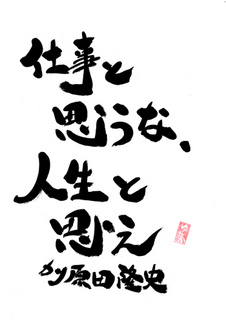 仕事と
思うな、
人生と
思え
by 原田隆史